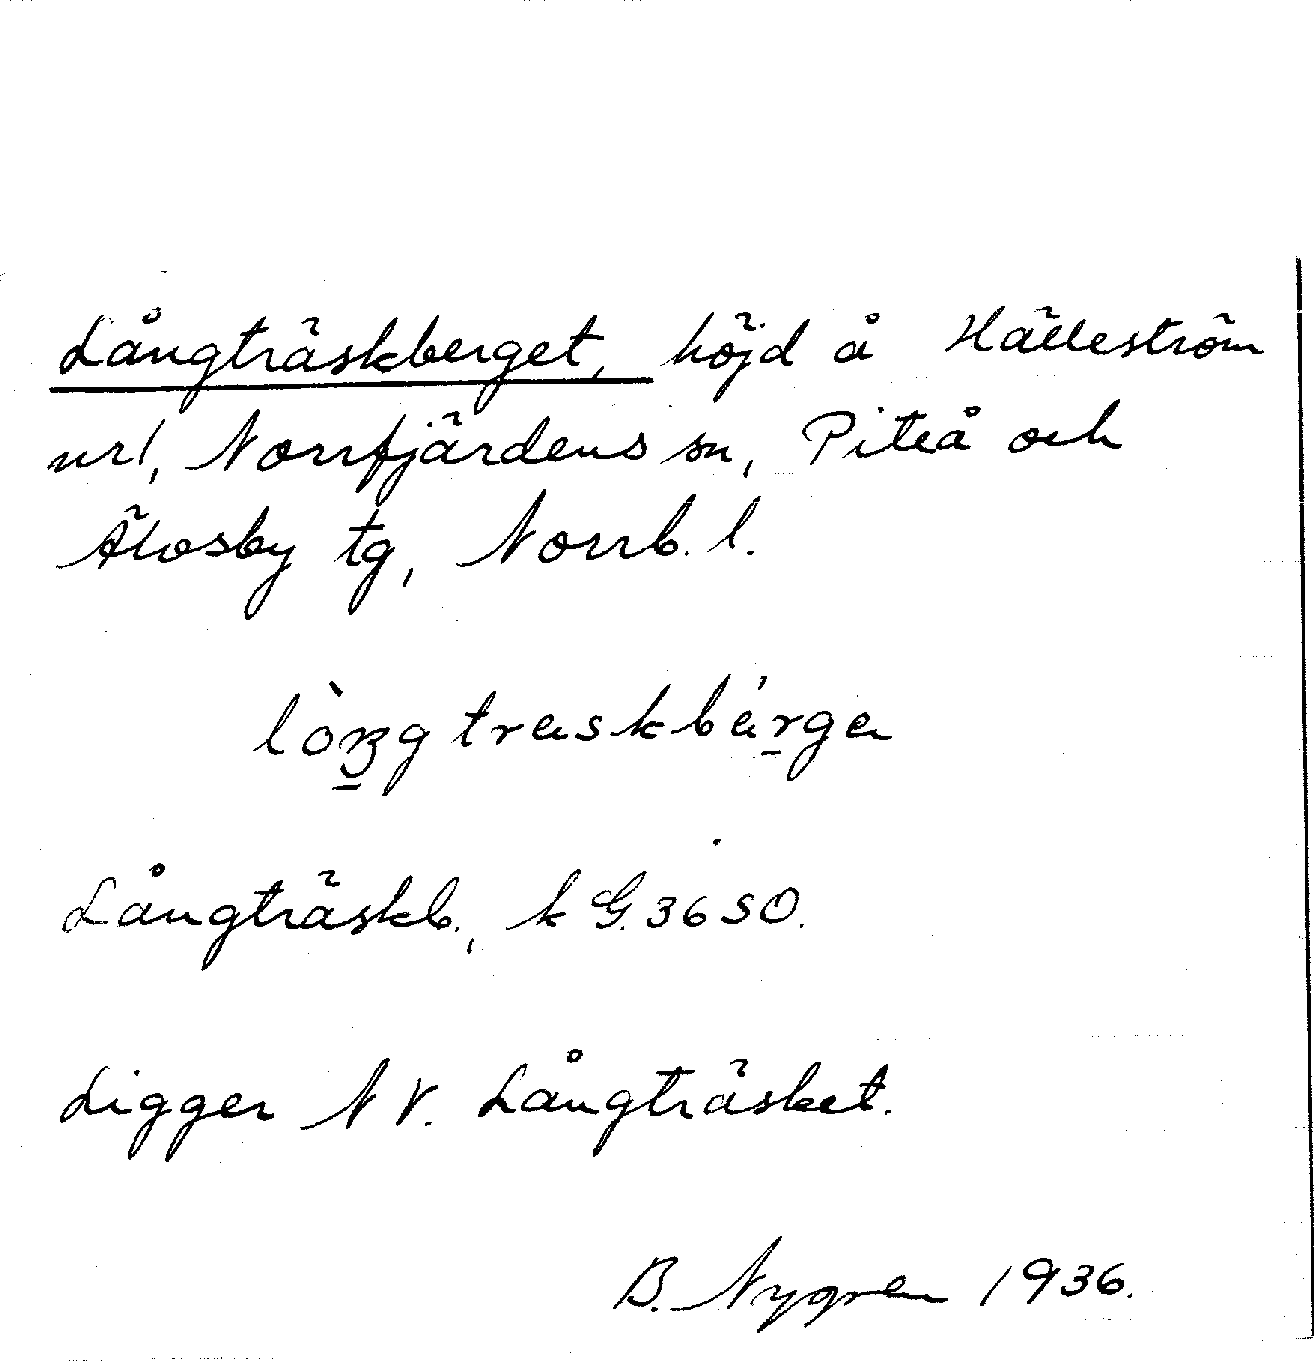 Långträskberget, höjd å Hälleström
nr 1, Norrfjärdens sn, Piteå och
Älvsby tg, Norrb. l.
lòŋgtræskbǽrgæ
Långträskb., k G. 36 SO.
Ligger N V. Långträsket.
B. Nygren 1936.